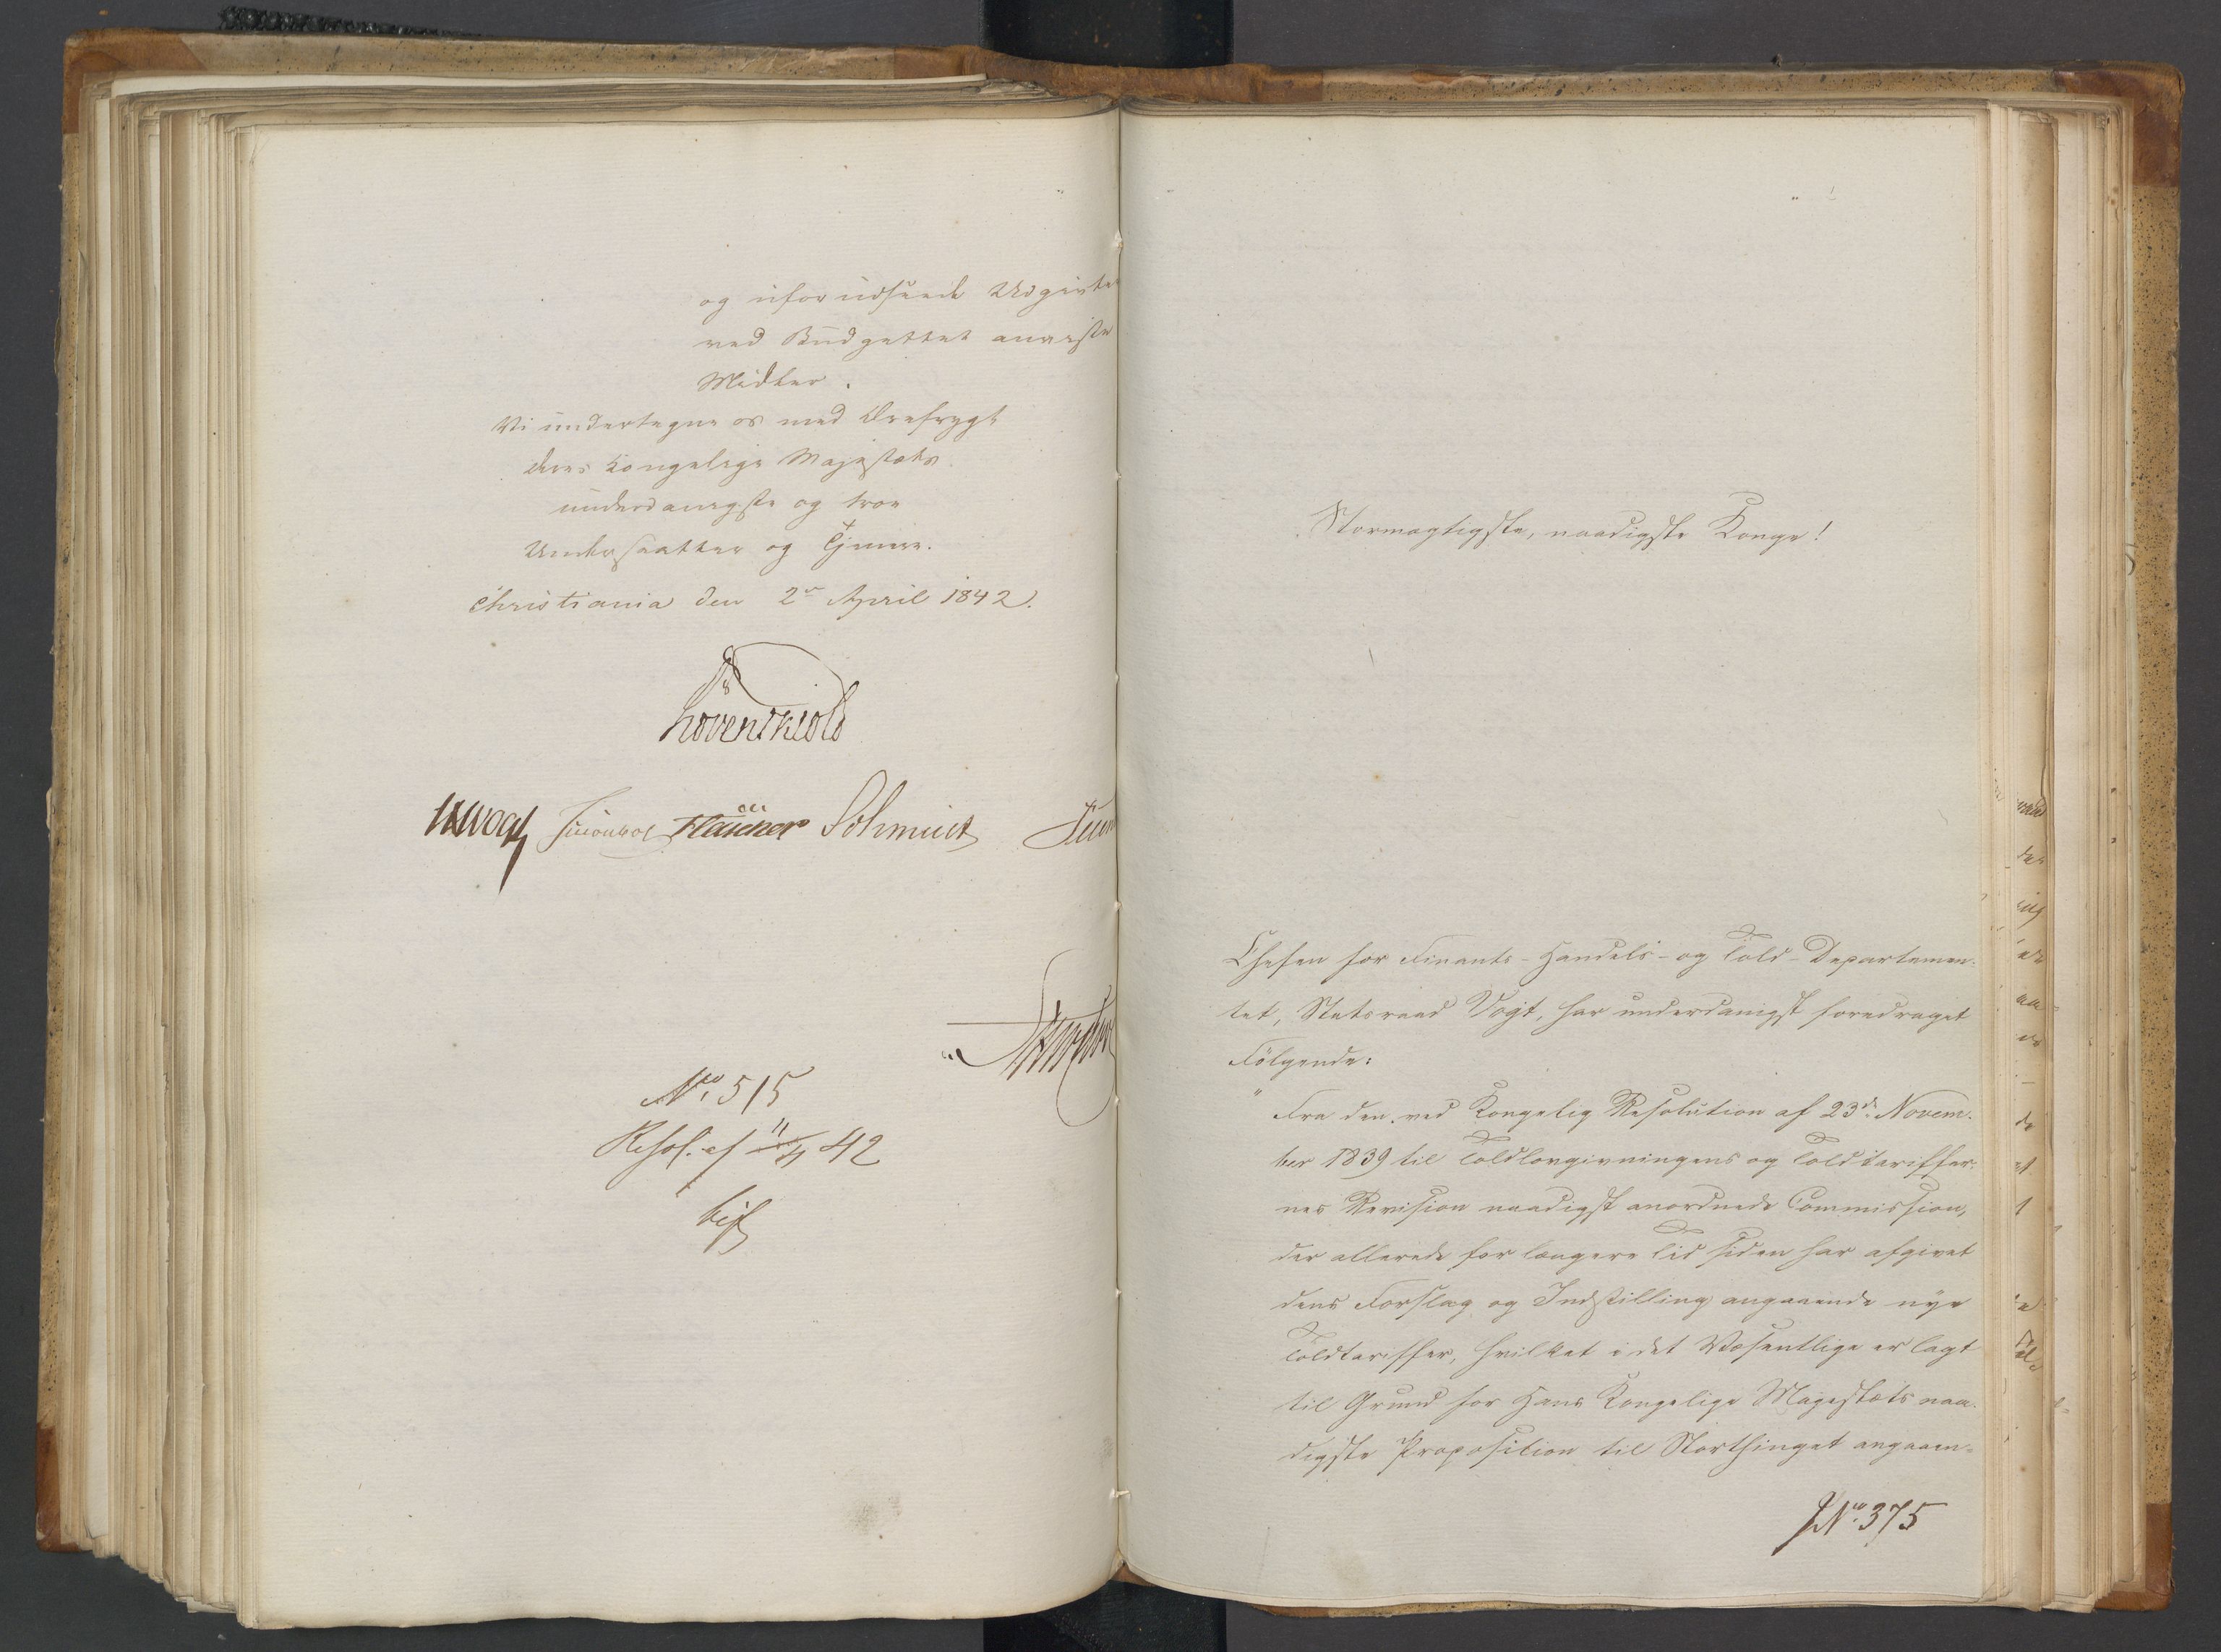 og uforudseede Udgivter
ved Budgettet anviste
Midler.
Vi undertegne os med Ærefrygt
Deres Kongelige Majestæts
underdanigste og troe
Undersaatter og Tjenere.
Christiania den 2den April 1842.
Løvenskiold
Vogt Hauner Schmidt
No. 515
Resol. af 11/4 42
bif
Stormægtigste, naadigste Konge!
Chefen for Finants- Handels- og Told-Departemen-
tet, Statsraad Vogt, har underdanigst foredraget
Følgende:
"Fra den ved Kongelig Resolution af 23de Novem-
ber 1839 til Toldlovgivningens og Toldtariffer-
nes Revision naadigst anordnede Commission,
der allerede for længere Tid siden har afgivet
dens Forslag og Indstilling angaaende nye
Toldtariffer, hvilket i det Væsentlige er lagt
til Grund for Hans Kongelige Majestæts naa-
digste Proposition til Storthinget angaaen-
JNo. 375